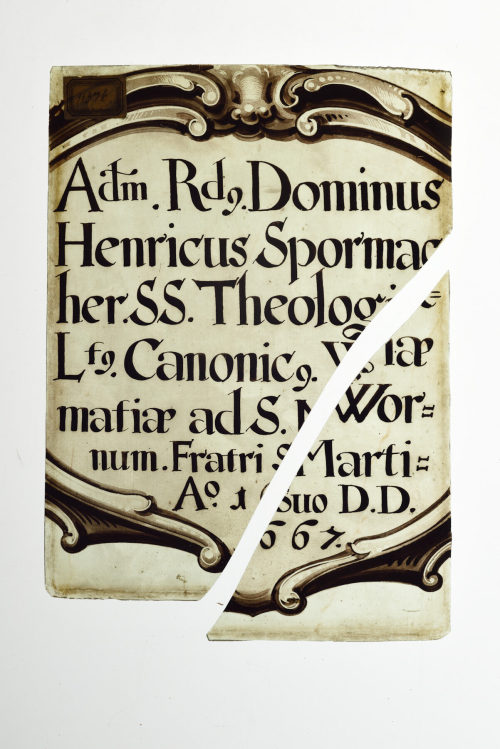 Adm. Rdꝯ. Dominus
Henricus Spormac
her. SS. Theologi =
Lfꝯ. Canonicꝯ. W iæ
matiæ ad S. M Wor=
num. Fratri S Marti=
Aº. 1 suo D.D.
667.